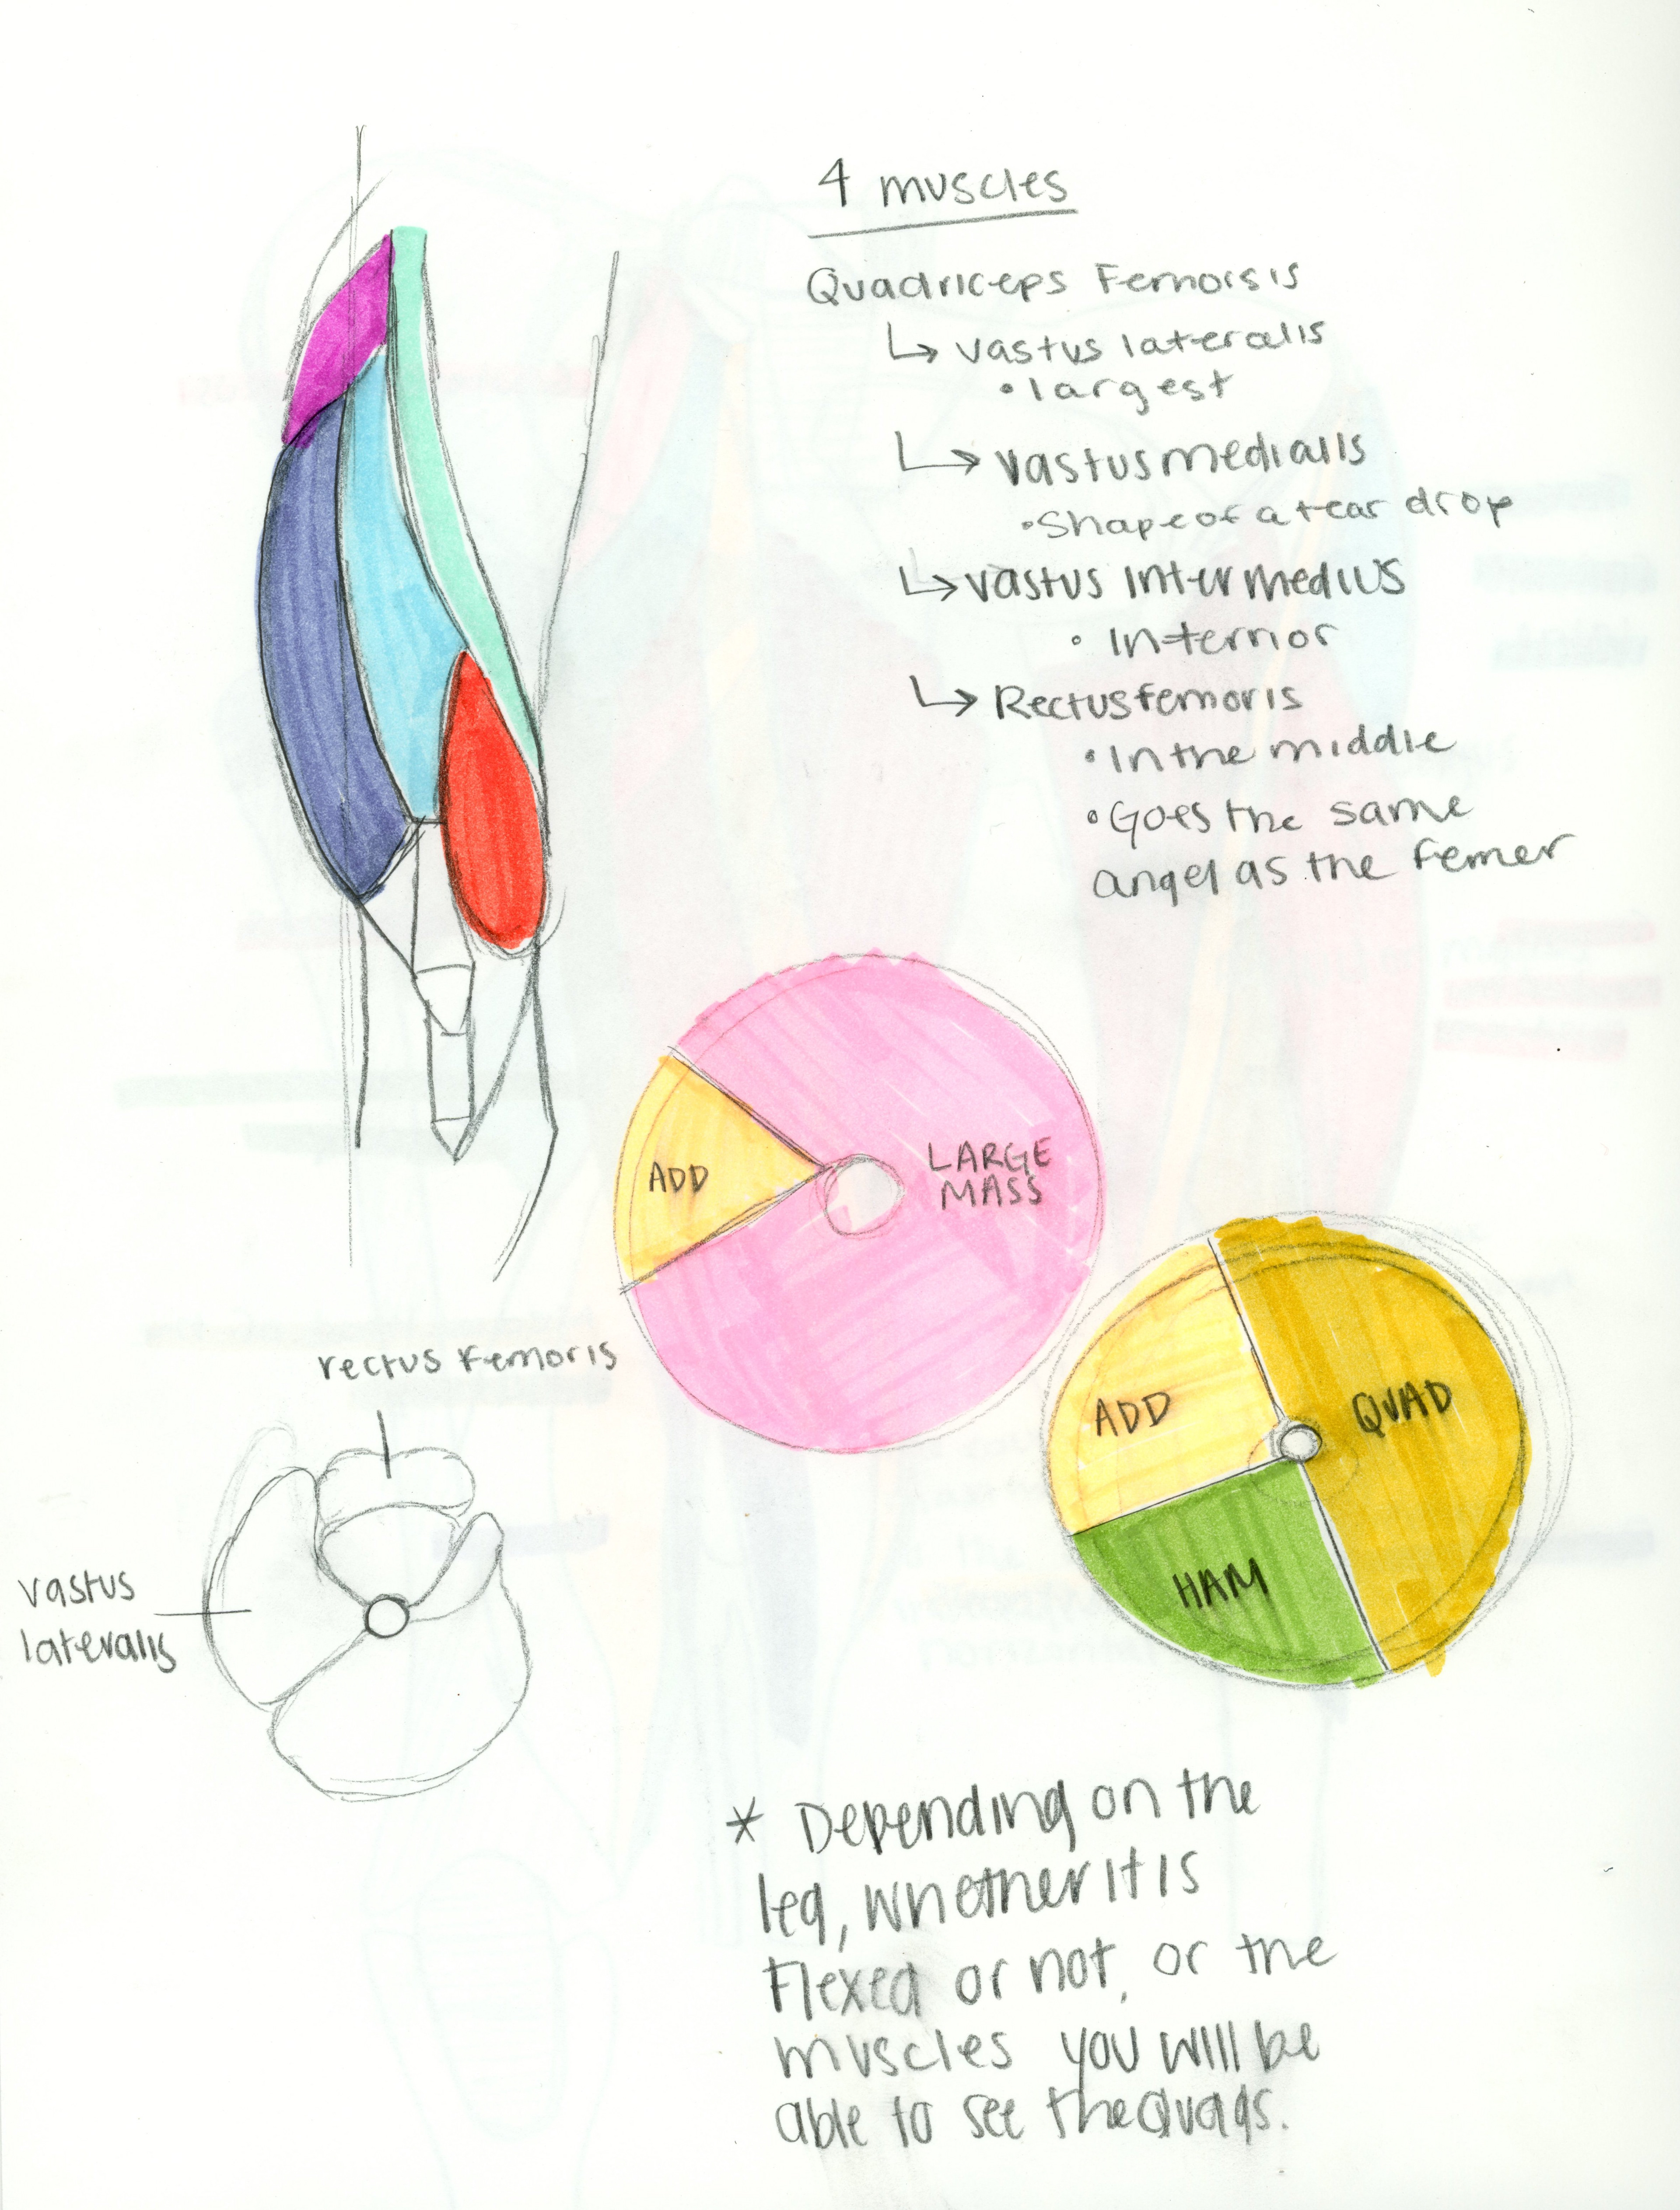 4 muscles
Quadriceps Femorsis
↳ vastus lateralis
• largest
↳ vastus medialis
• Shape of a tear drop
↳ vastus intermedius
• Internior
↳ Rectus femoris
• In the middle
• Goes the same
angel as the femer
ADD
LARGE
MASS
ADD
QUAD
HAM
rectus femoris
vastus
lateralis
* Depending on the
leg, whether it is
flexed or not, or the
muscles you will be
able to see the quads.